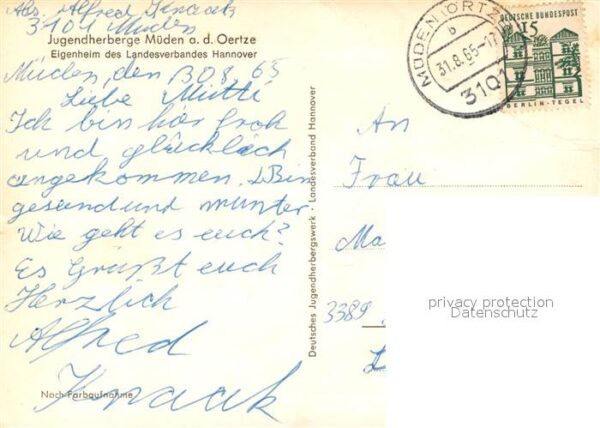 Abs. Alfred Knaak
3101 Müden
Jugendherberge Müden a. d. Oertze
Eigenheim des Landesverbandes Hannover
Müden, den 30.8.65
Liebe Mutti
Ich bin hir froh
und glücklich
angekommen. Bin
gesund und munter.
Wie geht es euch?
Es Grüßt euch
Herzlich
Alfred
Knaak
Noch Farbaufnahme
Deutsches Jugendherbergswerk · Landesverband Hannover
MÜDEN (ÖRTZE)
b
31.8.65-17
3101
DEUTSCHE BUNDESPOST
15
BERLIN-TEGEL
An
Frau
Ma
3389
privacy protection
Datenschutz